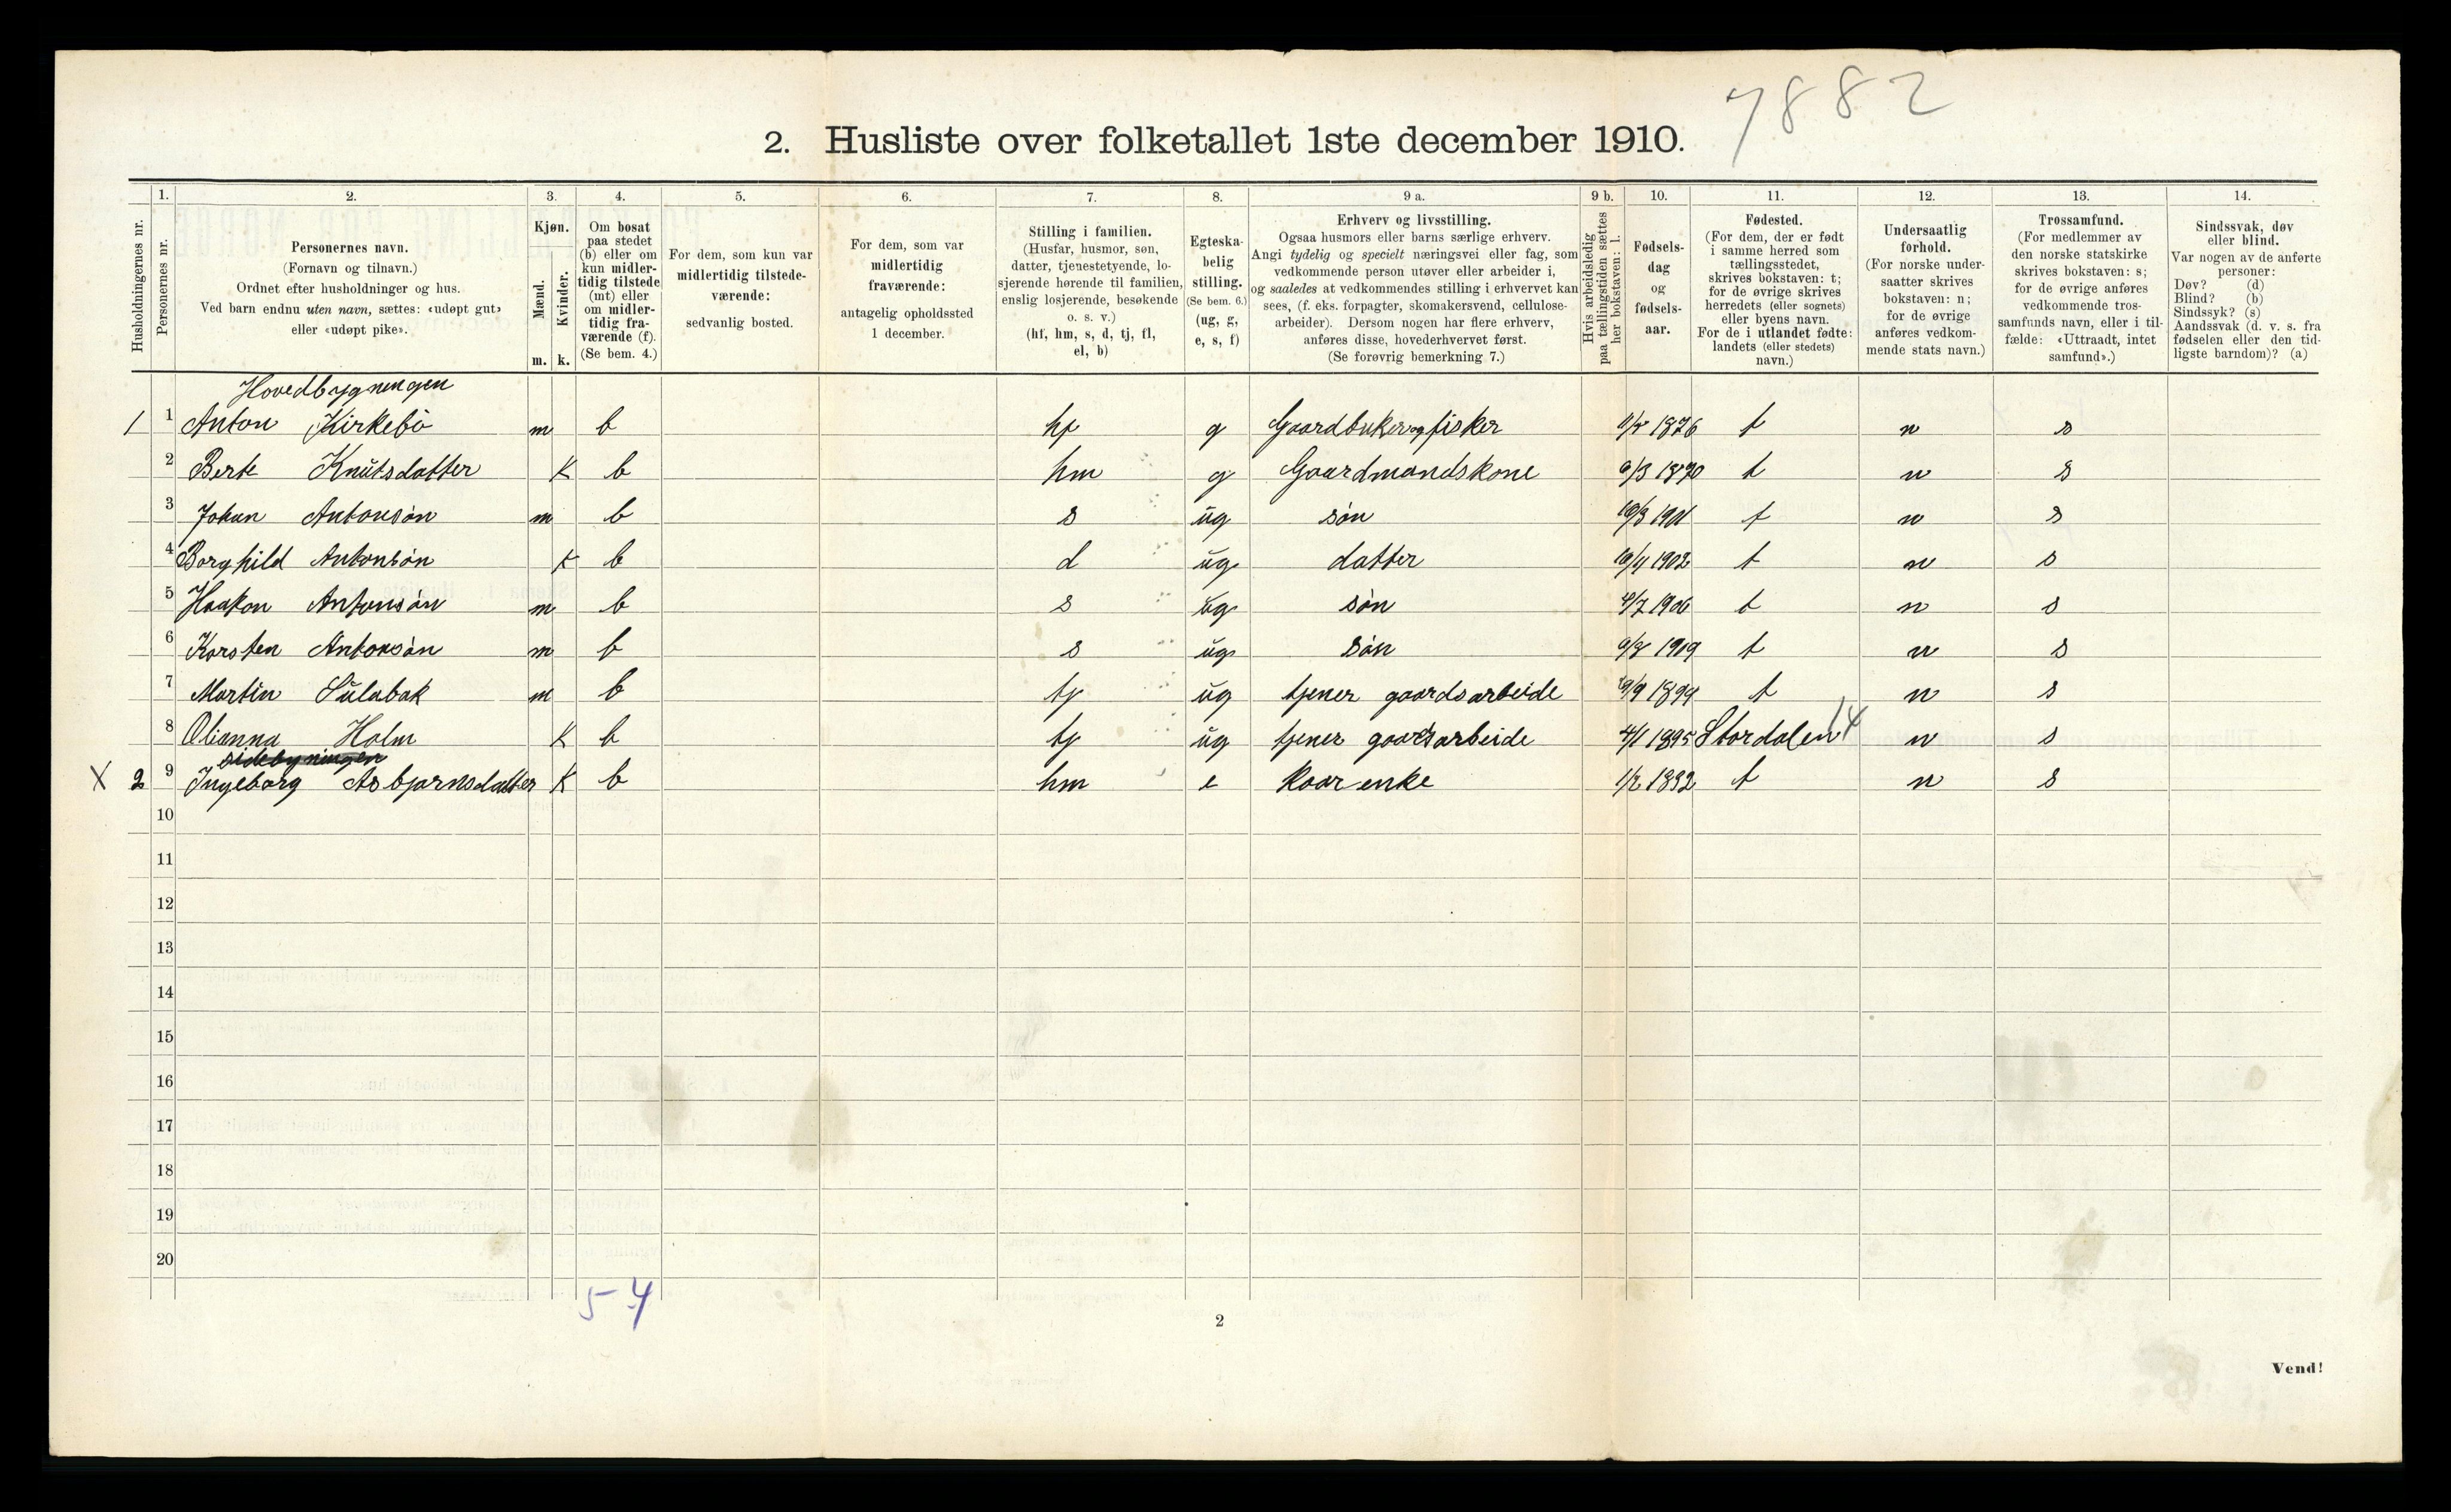 7882
2. Husliste over folketallet 1ste december 1910.
Husholdningernes nr.
1.
Personernes nr.
2.
Personernes navn.
(Fornavn og tilnavn.)
Ordnet efter husholdninger og hus.
Ved barn endnu uten navn, sættes: «udøpt gut»
eller «udøpt pike».
3.
Kjøn.
Mænd.
m.
Kvinder.
k.
4.
Om bosat
paa stedet
(b) eller om
kun midler-
tidig tilstede
(mt) eller
om midler-
tidig fra-
værende (f).
(Se bem. 4.)
5.
For dem, som kun var
midlertidig tilstede-
værende:
sedvanlig bosted.
6.
For dem, som var
midlertidig
fraværende:
antagelig opholdssted
1 december.
7.
Stilling i familien.
(Husfar, husmor, søn,
datter, tjenestetyende, lo-
sjerende hørende til familien,
enslig losjerende, besøkende
o. s. v.)
(hf, hm, s, d, tj, fl,
el, b)
8.
Egteska-
belig
stilling.
(Se bem. 6.)
(ug, g,
e, s, f)
9 a.
Erhverv og livsstilling.
Ogsaa husmors eller barns særlige erhverv.
Angi tydelig og specielt næringsvei eller fag, som
vedkommende person utøver eller arbeider i,
og saaledes at vedkommendes stilling i erhvervet kan
sees, (f. eks. forpagter, skomakersvend, cellulose-
arbeider). Dersom nogen har flere erhverv,
anføres disse, hovederhvervet først.
(Se forøvrig bemerkning 7.)
9 b.
Hvis arbeidsledig
paa tællingstiden sættes
her bokstaven: l.
10.
Fødsels-
dag
og
fødsels-
aar.
11.
Fødested.
(For dem, der er født
i samme herred som
tællingsstedet,
skrives bokstaven: t;
for de øvrige skrives
herredets (eller sognets)
eller byens navn.
For de i utlandet fødte:
landets (eller stedets)
navn.)
12.
Undersaatlig
forhold.
(For norske under-
saatter skrives
bokstaven: n;
for de øvrige
anføres vedkom-
mende stats navn.)
13.
Trossamfund.
(For medlemmer av
den norske statskirke
skrives bokstaven: s;
for de øvrige anføres
vedkommende tros-
samfunds navn, eller i til-
fælde: «Uttraadt, intet
samfund».)
14.
Sindssvak, døv
eller blind.
Var nogen av de anførte
personer:
Døv? (d)
Blind? (b)
Sindssyk? (s)
Aandssvak (d. v. s. fra
fødselen eller den tid-
ligste barndom)? (a)
Hovedbygningen
1 1 Anton Kirkebö m b hf g Gaardbuker og fisker 1876 t n s
2 Berte Knütsdatter K b hm g Gaardmandskone 9/3 1870 t n s
3 Johan Antonsön m b s üg sön 1901 t n s
4 Borghild Antonsön K b d üg datter 1902 t n s
5 Haakon Antonsön m b s üg sön 4/7 1906 t n s
6 Korsten Antonsön m b s üg sön 1909 t n s
7 Martin Sülebak m b tj üg tjener gaardsarbeide 1899 t n s
8 Olianna Holm K b tj üg tjener gaardsarbeide 4/1 1895 Stordalen 14 n s
sidebyningen
X 2 9 Ingeborg Asbjornsdatter K b hm e Kaarenke 1/2 1832 t n s
10
11
12
13
14
15
16
17
18
19
20
5-4
2
Vend!